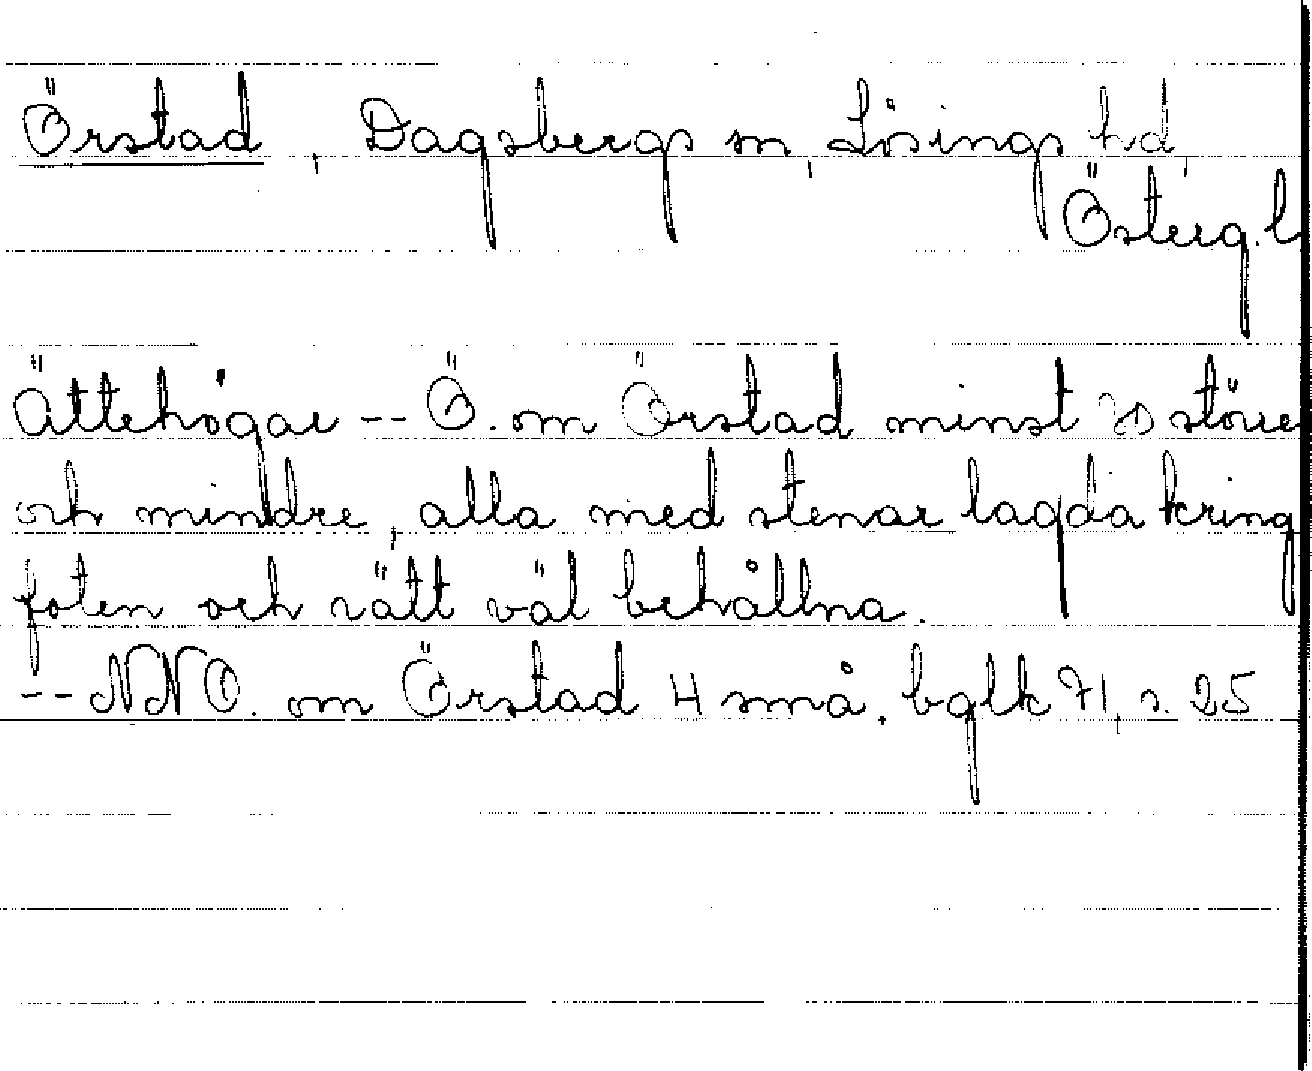 Örstad, Dagsbergs sn, Lösings hd,
Österg. l
Ättehögar -- Ö. om Örstad minst 20 större
och mindre, alla med stenar lagda kring
foten och rätt väl behållna.
-- NNO. om Örstad 4 små. bglk 71, s. 25